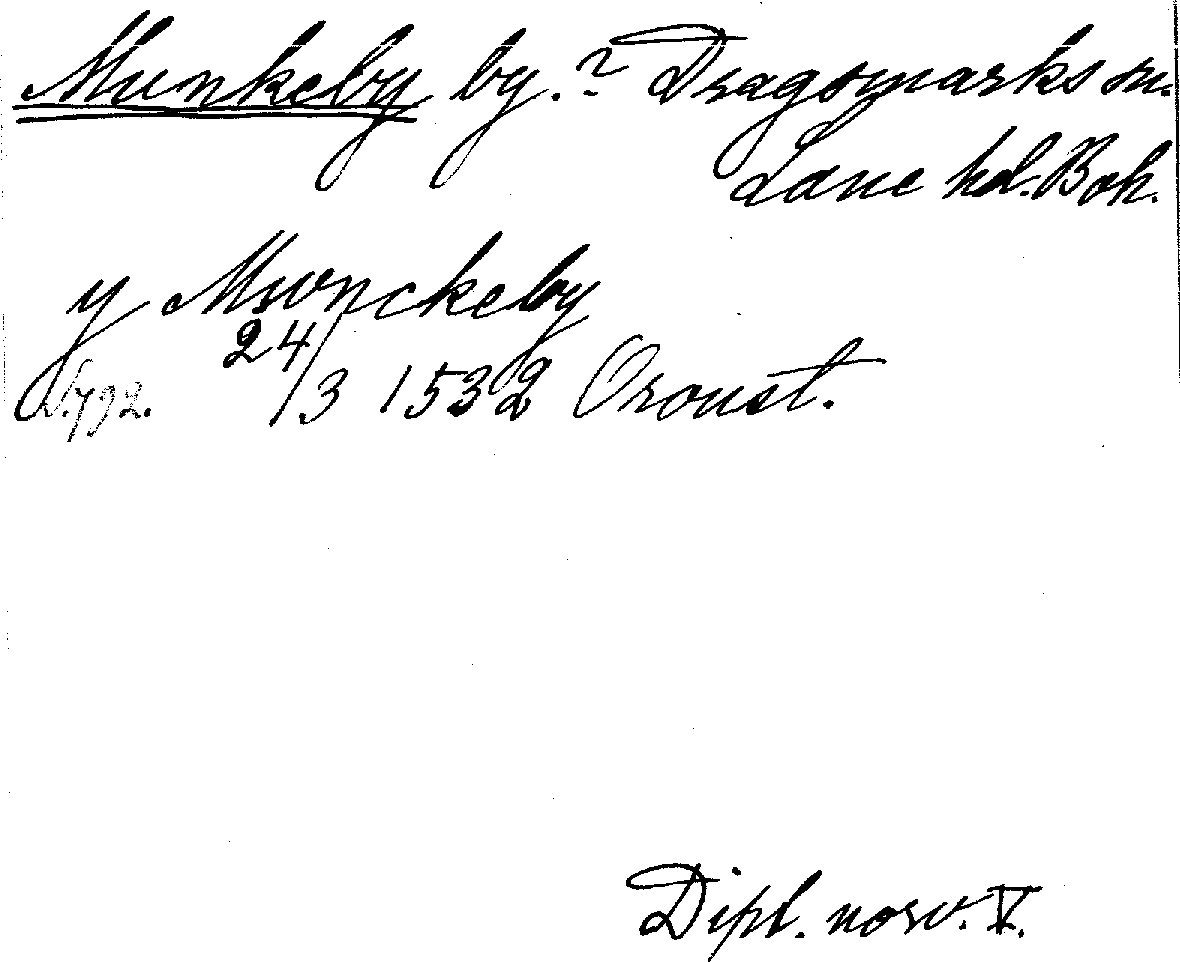 Munkeby by.? Dragsmarks sn.
Lane hd. Boh.
y Mwnckeby
24/3 1532 Oroust.
Dipl. norv. V.